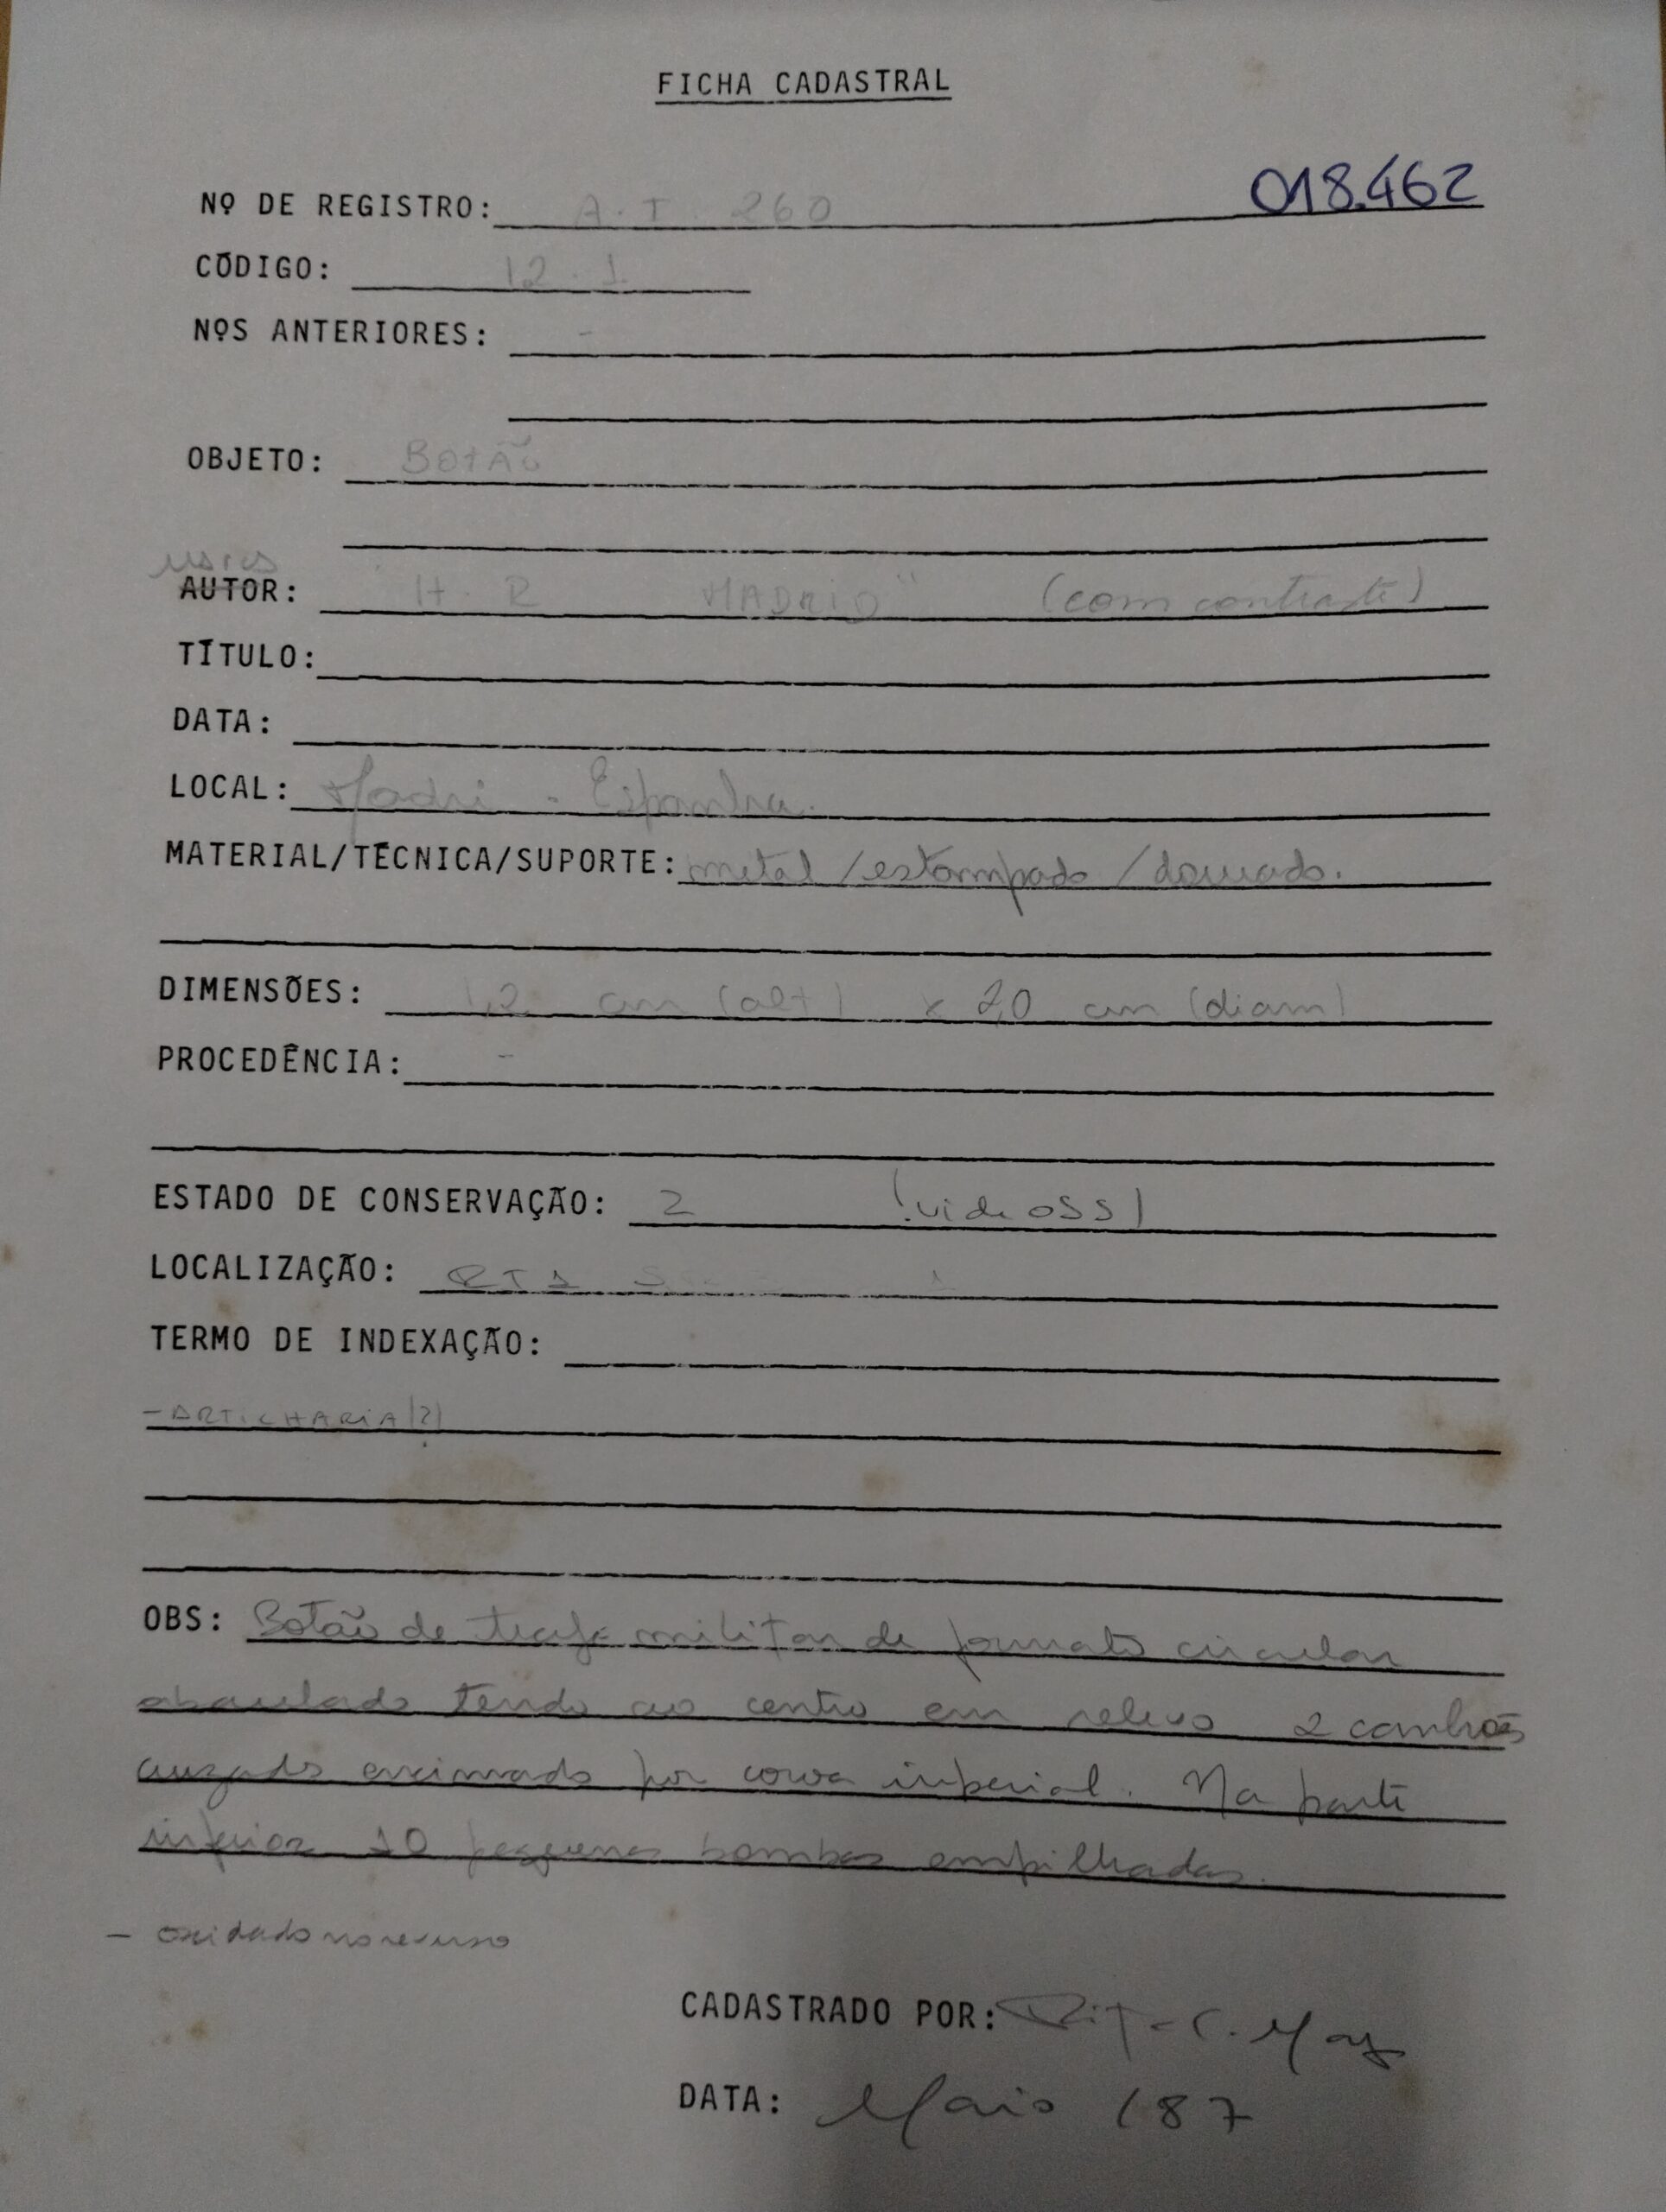 FICHA CADASTRAL
Nº DE REGISTRO: A.T. 260 018.462
CÓDIGO: 12.1
NºS ANTERIORES: -
OBJETO: BOTÃO
AUTOR: H. R MADRID" (com contraste)
TÍTULO:
DATA:
LOCAL: Madri - Espanha.
MATERIAL/TÉCNICA/SUPORTE: metal /estampado /dourado.
DIMENSÕES: 1,2 cm (alt) x 2,0 cm (diam)
PROCEDÊNCIA: -
ESTADO DE CONSERVAÇÃO: 2 (vide OSS)
LOCALIZAÇÃO: RT1
TERMO DE INDEXAÇÃO:
- ARTILHARIA (?)
OBS: Botão de traje militar de formato circular
abaulado tendo ao centro em relevo 2 canhões
cruzados encimado por coroa imperial. Na parte
inferior 10 pequenas bombas empilhadas.
- oxidado no reverso
CADASTRADO POR: Rita C. May
DATA: Maio /87